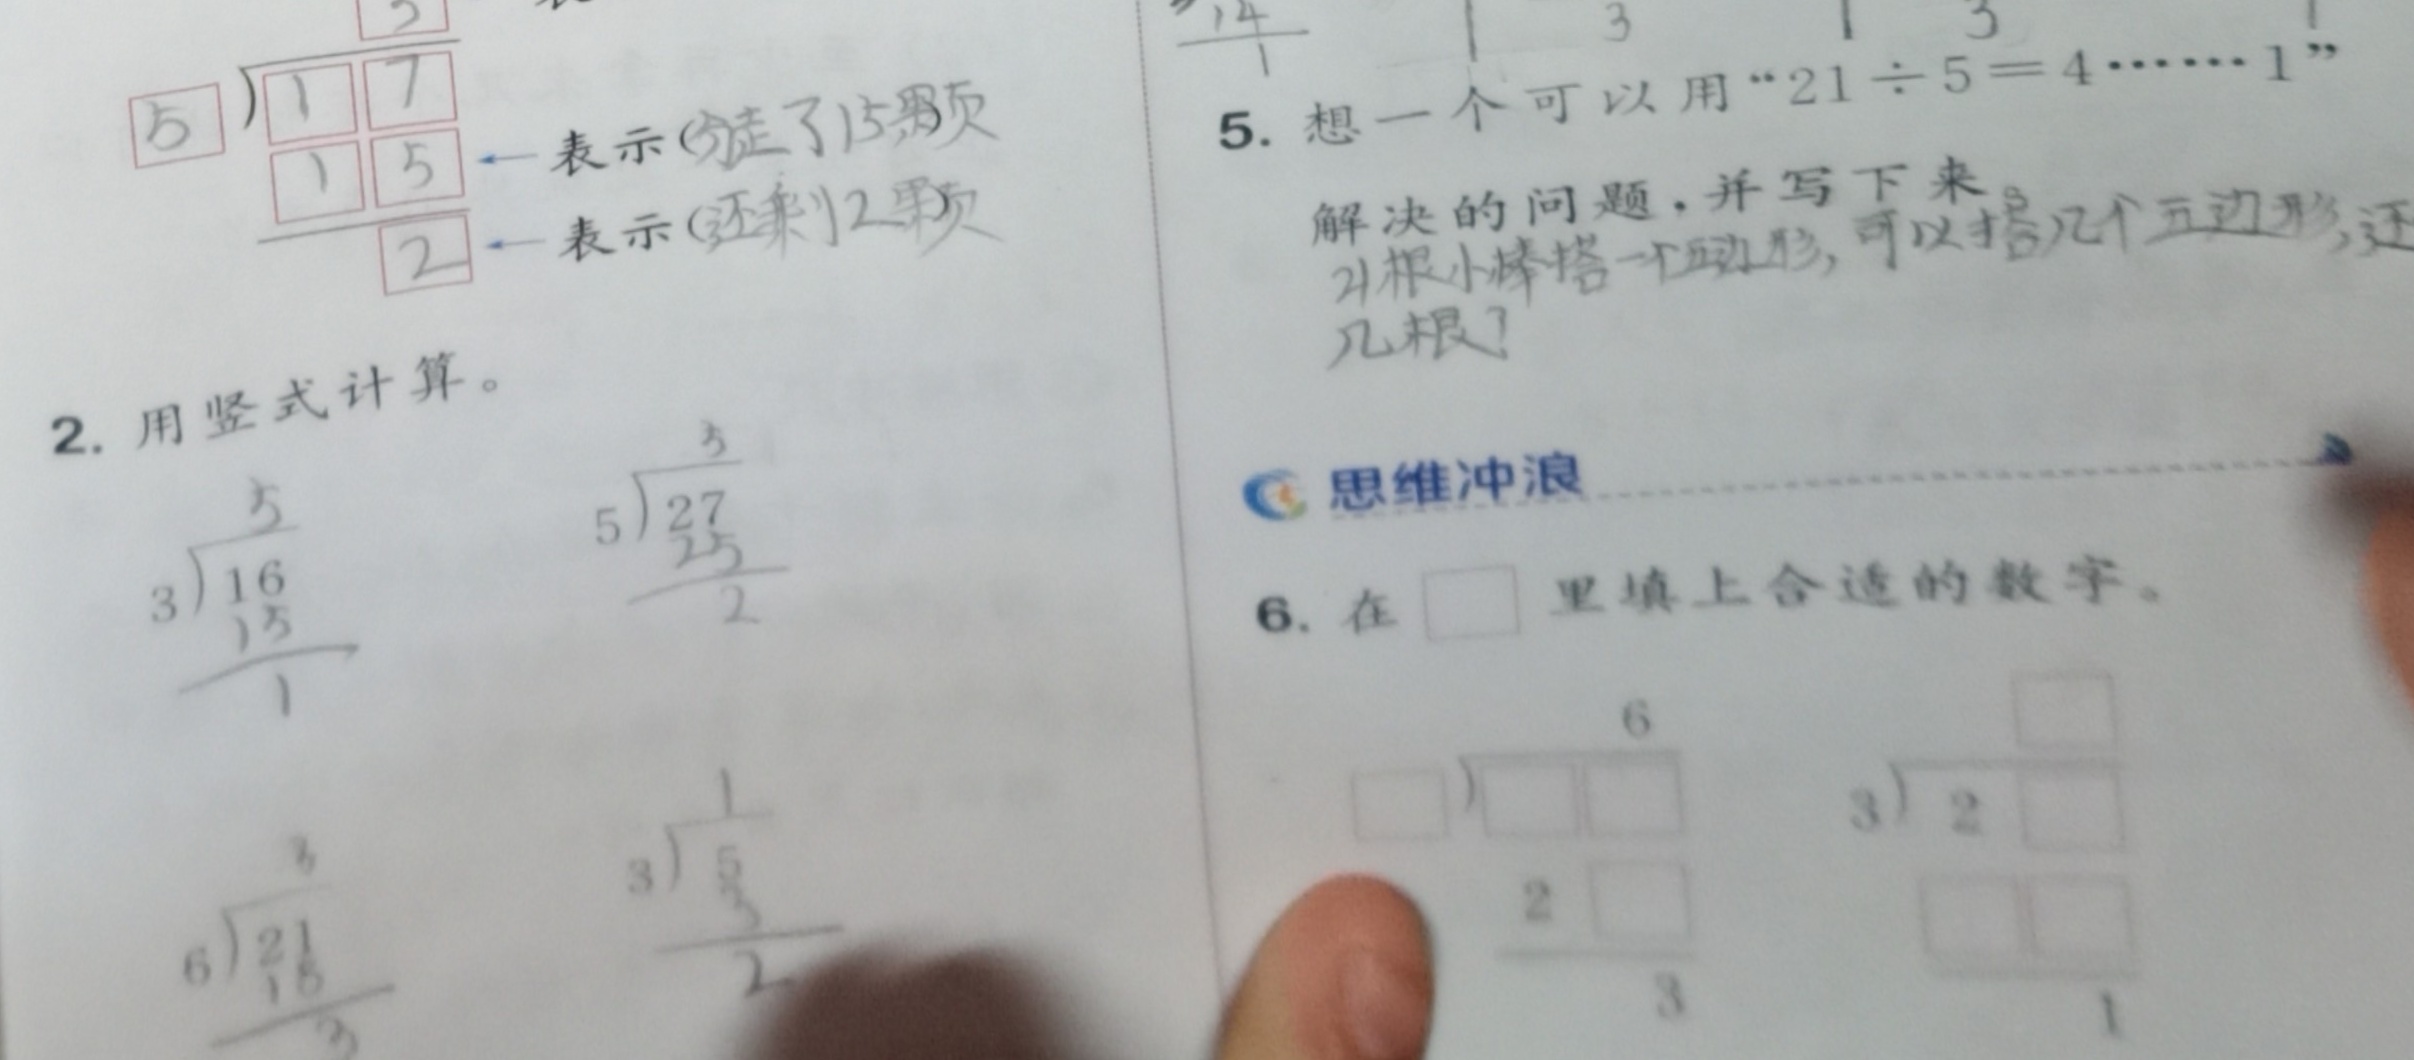 5
17
15 ← 表示(分走了15颗
2 ← 表示(还剩2颗
2. 用竖式计算。
5
3)16
15
1
5
5)27
25
2
3
6)21
18
3
1
3)5
3
2
14
1
1 3 1 3
5. 想一个可以用“21÷5=4……1”
解决的问题,并写下来。
21根小棒搭一个五边形,可以搭几个五边形,还
几根?
思维冲浪
6. 在□里填上合适的数字。
6
□)□□
2□
3
□
3)2□
□□
1